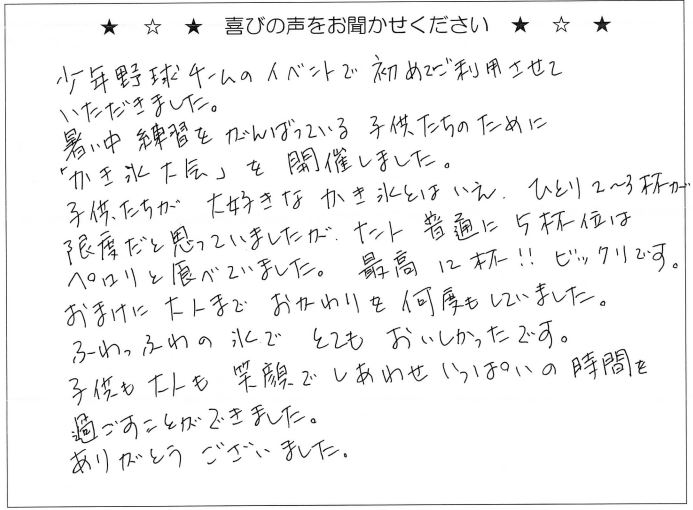 ★ ☆ ★ 喜びの声をお聞かせください ★ ☆ ★
少年野球チームのイベントで初めてご利用させて
いただきました。
暑い中 練習をがんばっている 子供たちのために
「かき氷大会」を開催しました。
子供たちが 大好きな かき氷とはいえ、ひとり2〜3杯が
限度だと思っていましたが、ナント 普通に5杯位は
ペロリと食べていました。最高12杯!!ビックリです。
おまけに 大人まで おかわりを何度もしていました。
ふわっふわの氷で とても おいしかったです。
子供も大人も 笑顔で しあわせいっぱいの時間を
過ごすことができました。
ありがとう ございました。